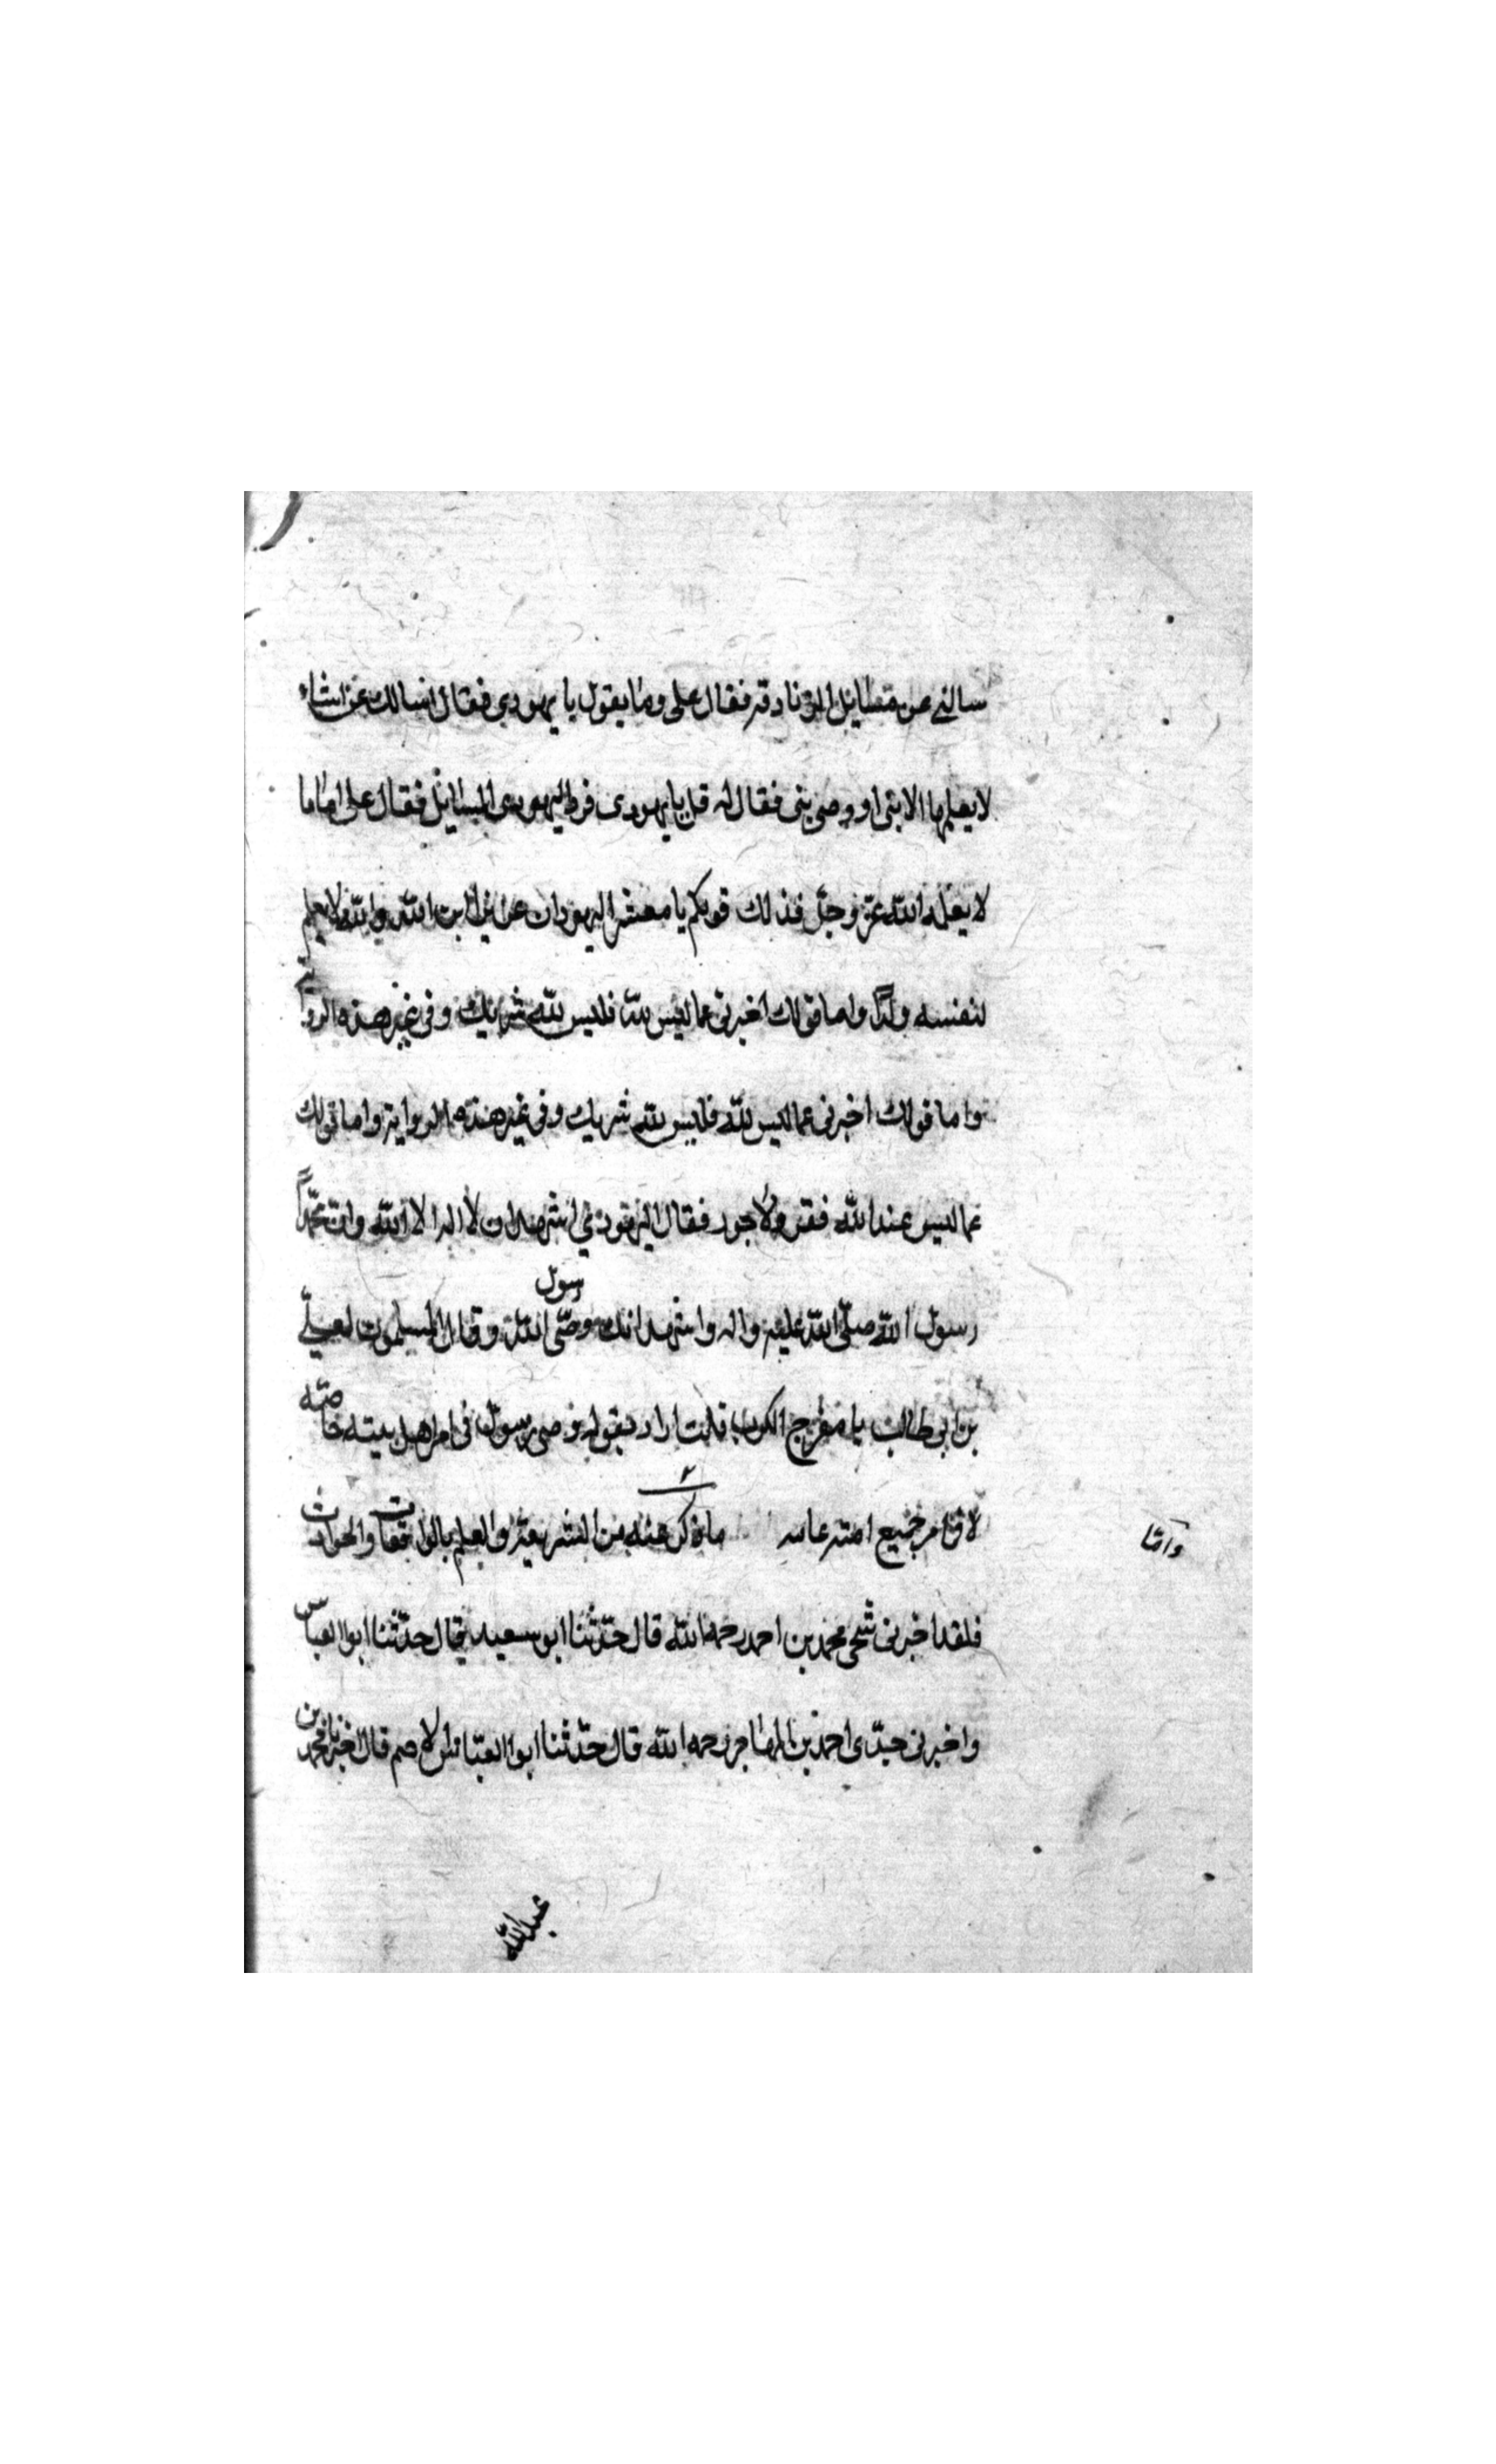 سالني عن مسايل الزنادقه فقال علي وما يقول يا يهودي فقال اسالك عن اشياء
لا يعلمها الا نبي او وصي نبي فقال له قل يا يهودي فرد اليهودي المسايل فقال علي اما ما
لا يعلمه الله عز وجل فذلك قولكم يا معشر اليهود ان عزيرا ابن الله والله لا يعلم
لنفسه ولدا واما قولك اخبرني عما ليس لله فليس لله شريك وفي غير هذه الرواية
واما قولك اخبرني عما ليس لله فليس لله شريك وفي غير هذه الرواية واما قولك
عما ليس عند الله فقر ولا جور فقال اليهودي اشهد ان لا اله الا الله وان محمدا
رسول الله صلى الله عليه واله واشهد انك وصي رسول الله وقال المسلمون لعلي
بن ابي طالب يا مفرج الكرب قلت اراد بقوله وصي رسول في امر اهل بيته خاصة
لا في امر جميع امته عامه ما ذكر عنه من الشريعة والعلم بالواقعات والحوادث
واما
فلقد اخبرني شيخي محمد بن احمد رحمه الله قال حدثنا ابو سعيد قال حدثنا ابو العباس
واخبرني جدي احمد بن المهاجر رحمه الله قال حدثنا ابو العباس الاصم قال اخبرنا محمد بن
عبد الله